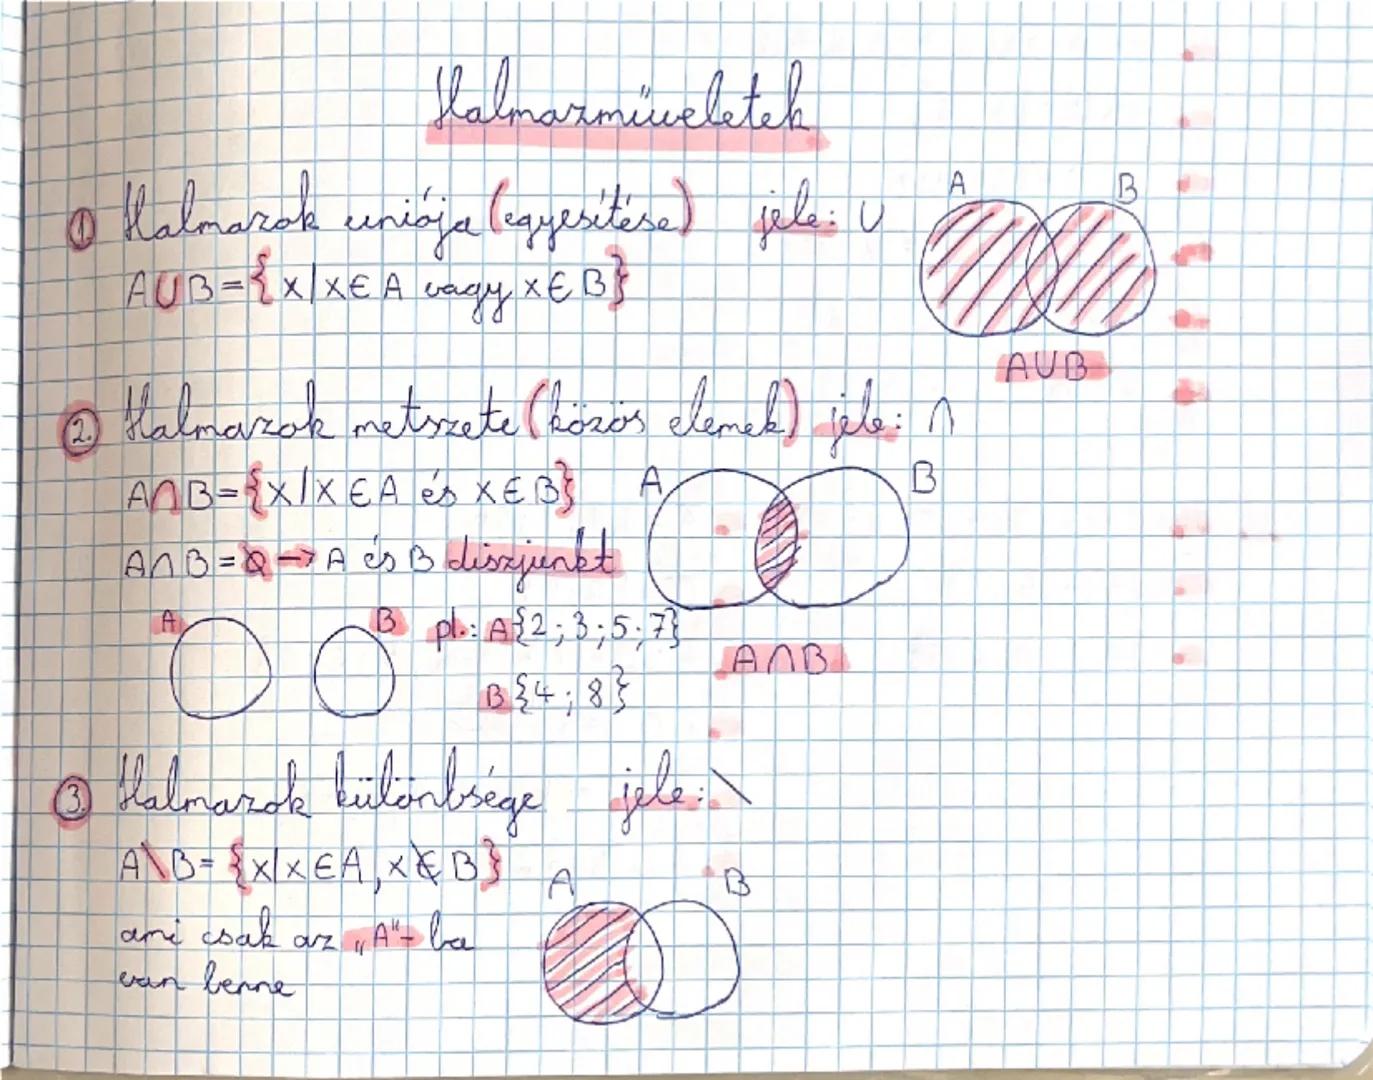 Halmazműveletek
A B
① Halmazok uniója (egyesítése) jele: ∪
A∪B={x|x∈A vagy x∈B}
A∪B
②. Halmazok metszete (közös elemek) jele: ∩
A∩B={x/x∈A és x∈B} A B
A∩B=∅→A és B diszjunkt
A B pl.: A{2;3;5;7}
A∩B
B{4;8}
③. Halmazok különbsége jele: \
A\B={x|x∈A, x∉B}
A B
ami csak az „A"-ba
van benne